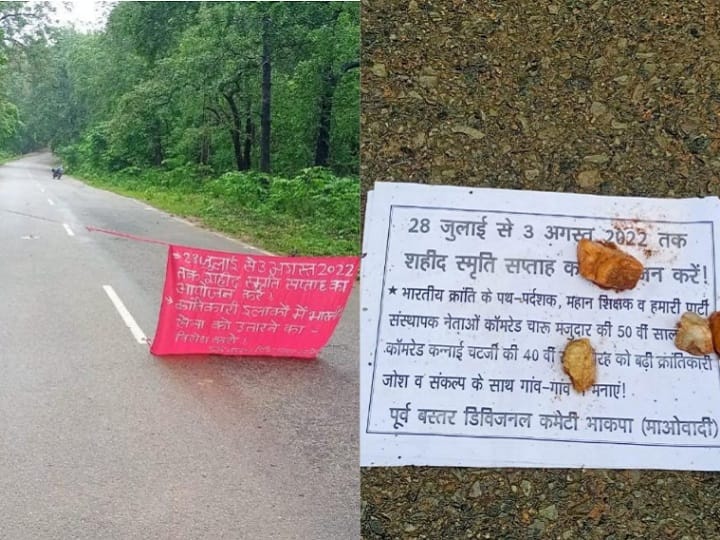 ★ 28 जुलाई से 3 अगस्त 2022
तक शहीद स्मृति सप्ताह का
आयोजन करें!
★ क्रांतिकारी इलाकों में
सेना को उतारने का -
विरोध करो!
28 जुलाई से 3 अगस्त 2022 तक
शहीद स्मृति सप्ताह का करें!
★ भारतीय क्रांति के पथ-प्रर्दशक, महान शिक्षक व हमारी पार्टी
संस्थापक नेताओं कॉमरेड चारू मजूदार की 50 वीं
कॉमरेड कन्नाई चटर्जी की 40 वीं को बढ़ी क्रांतिकारी
जोश व संकल्प के साथ गांव-गांव मनाएं!
पूर्व बस्तर डिविजनल कमेटी भाकपा (माओवादी)